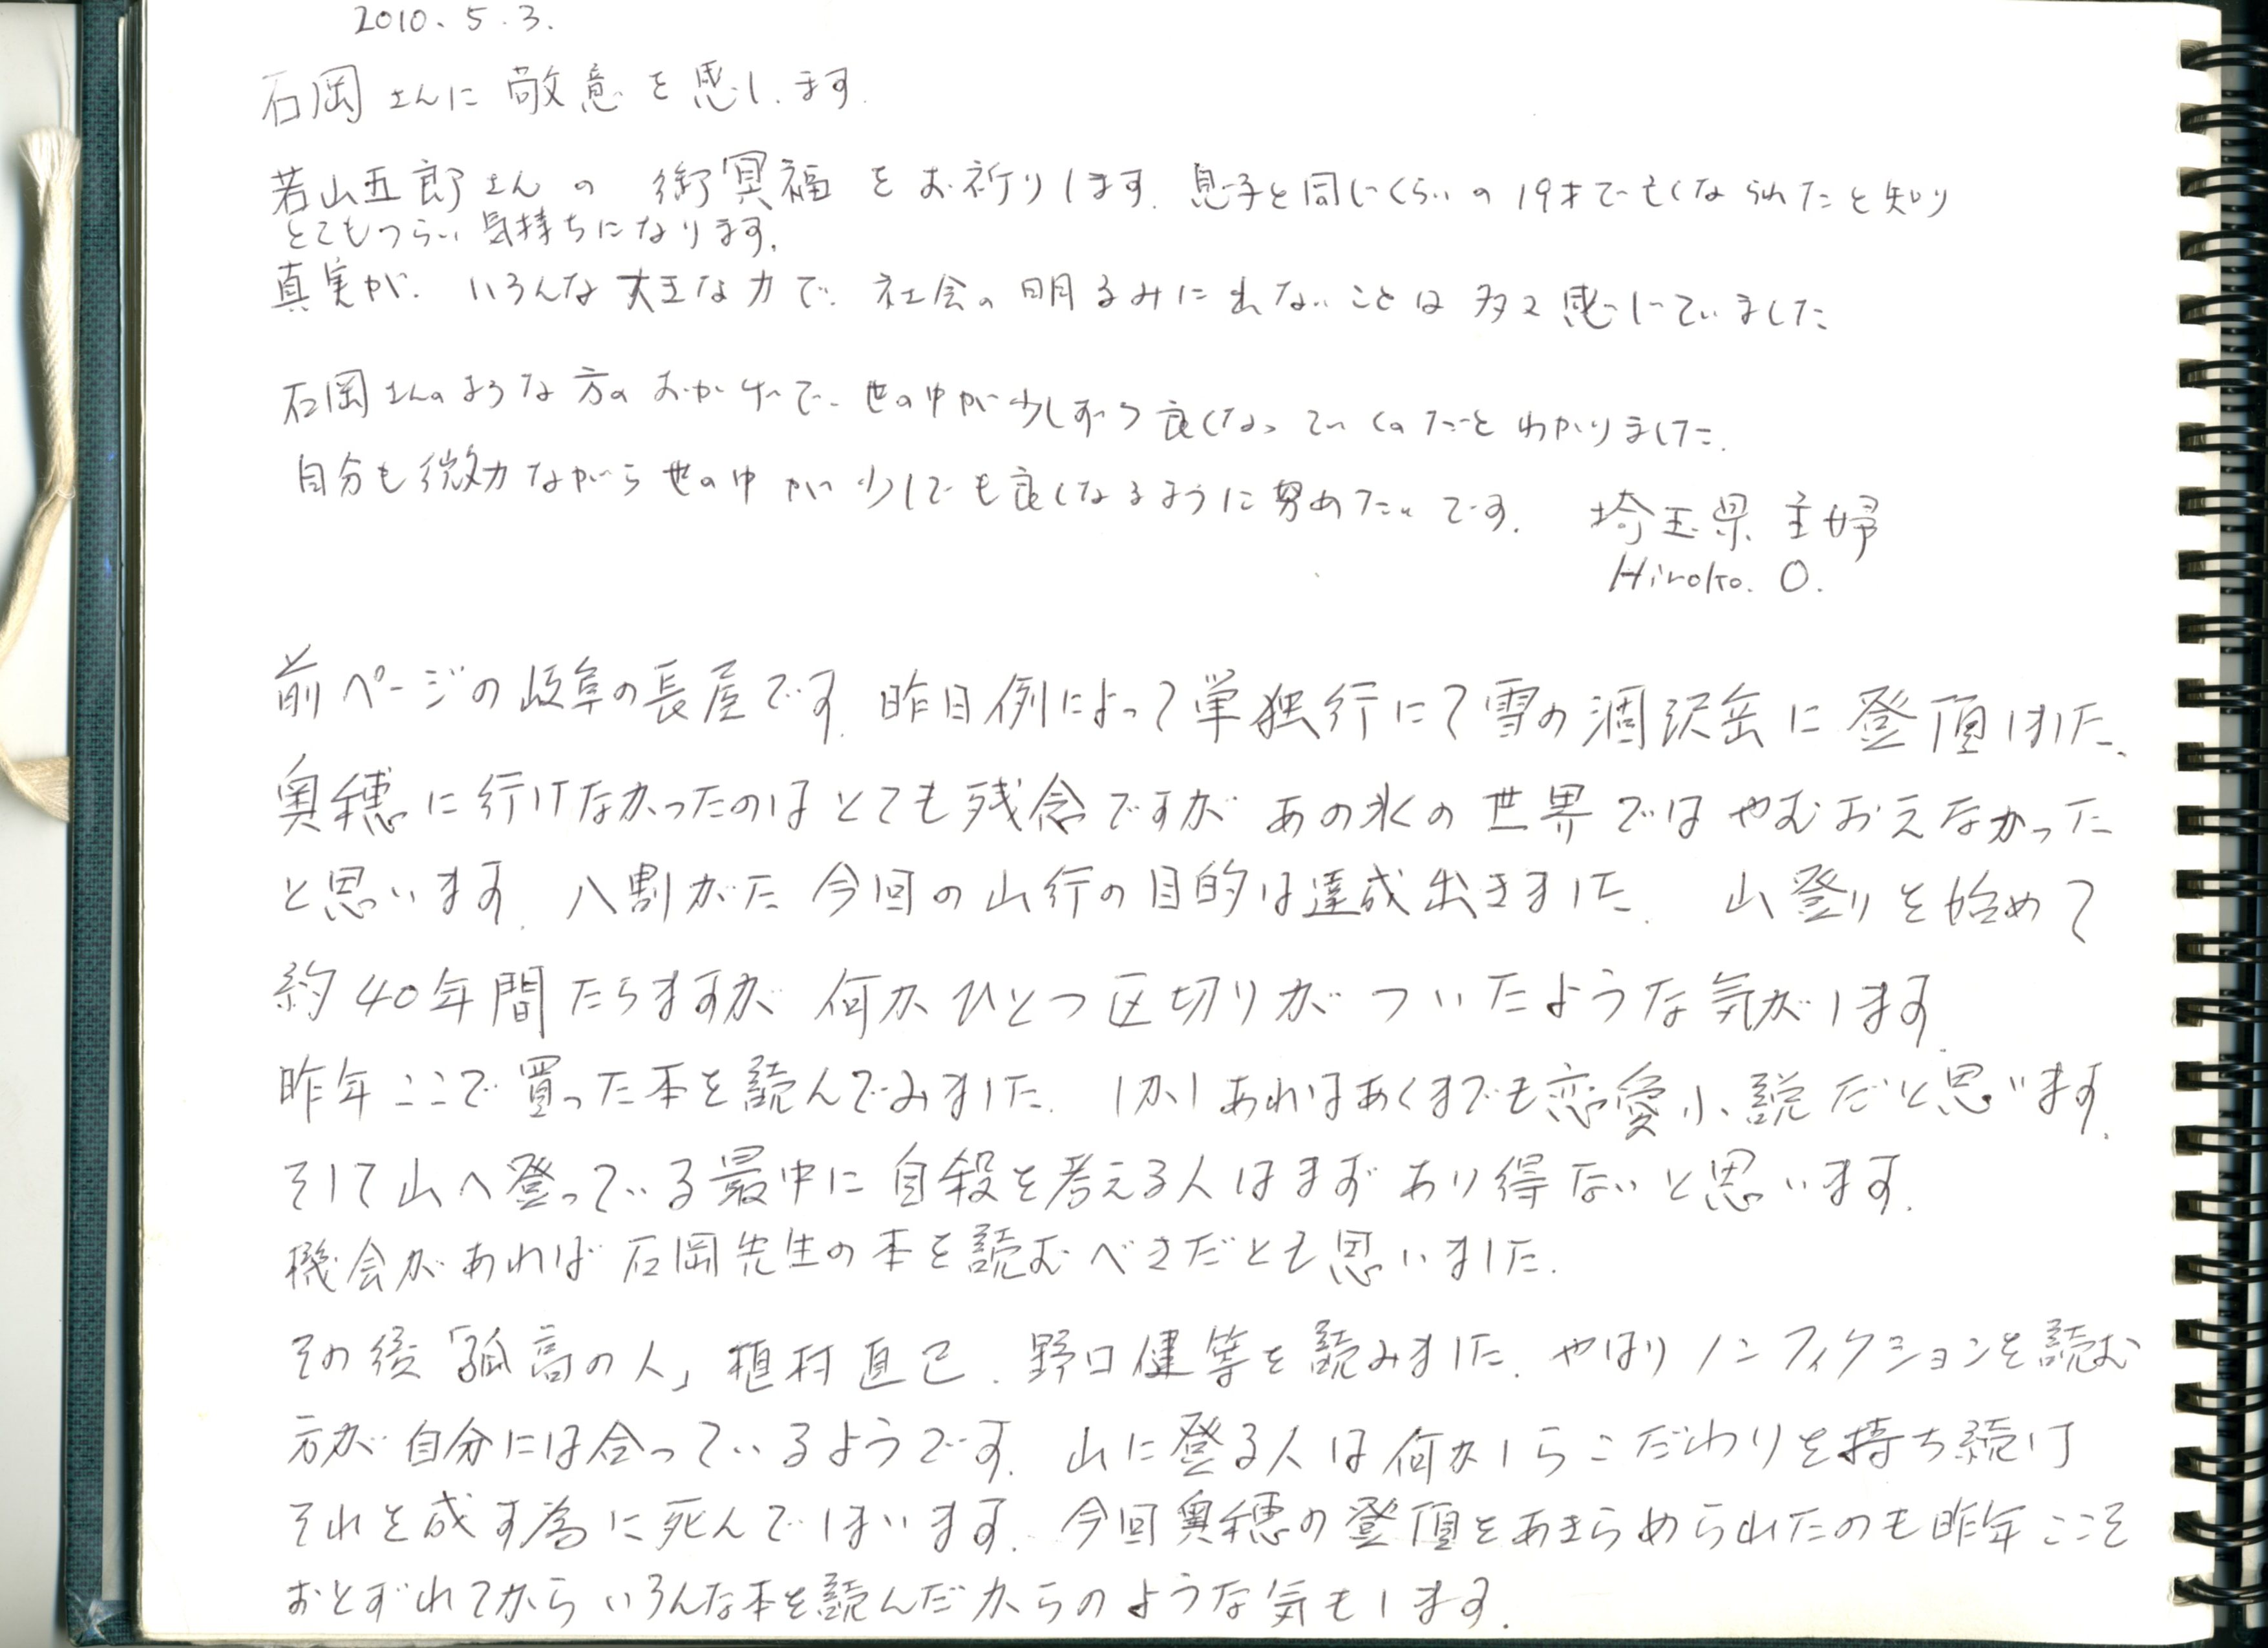 2010. 5. 3.
石岡さんに敬意を感じます.
若山五郎さんの 御冥福をお祈りします. 息子と同じくらいの19才で亡くなられたと知り
とてもつらい気持ちになります.
真実が. いろんな大きな力で. 社会の明るみに出ないことは多々感じていました
石岡さんのような方のおかげで. 世の中が少しずつ良くなっていくのだとわかりました.
自分も微力ながら世の中が少しでも良くなるように努めたいです. 埼玉県 主婦
Hiroko. O.
前ページの岐阜の長屋です. 昨日例によって単独行にて雪の涸沢岳に登頂しました.
奥穂に行けなかったのはとても残念ですが あの氷の世界ではやむおえなかった
と思います. 八割がた今回の山行の目的は達成出きました. 山登りを始めて
約40年間たちますが 何かひとつ区切りがついたような気がします.
昨年ここで買った本を読んでみました. しかしあれはあくまでも恋愛小説だと思います.
そして山へ登っている最中に自殺を考える人はまずあり得ないと思います.
機会があれば石岡先生の本を読むべきだとも思いました.
その後「孤高の人」植村直己. 野口健等を読みました. やはりノンフィクションを読む
方が自分には合っているようです. 山に登る人は何かしらこだわりを持ち続け
それを成す為に死んでしまいます. 今回奥穂の登頂をあきらめられたのも昨年ここを
おとずれてからいろんな本を読んだからのような気もします.